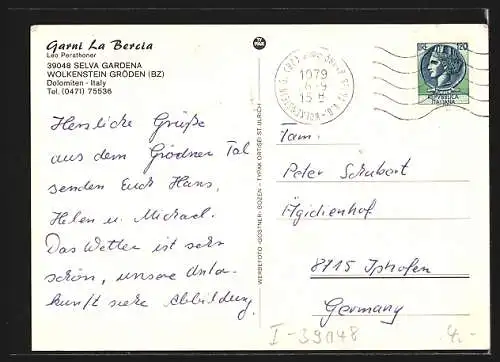 Garni La Bercia
Leo Perathoner
39048 SELVA GARDENA
WOLKENSTEIN GRÖDEN (BZ)
Dolomiten - Italy
Tel. (0471) 75536
Herzliche Grüße
aus dem Grödner Tal
senden Euch Hans,
Helen u. Michael.
Das Wetter ist sehr
schön, unsere Unter-
kunft siehe Abbildung.
WERBEFOTO «GOSTNER» BOZEN - TYPAK ORTISEI-ST. ULRICH
1979
15
120
ITALIANA
Fam.
Peter Schubert
Ägidienhof
8715 Iphofen
Germany
I-39048
4.-